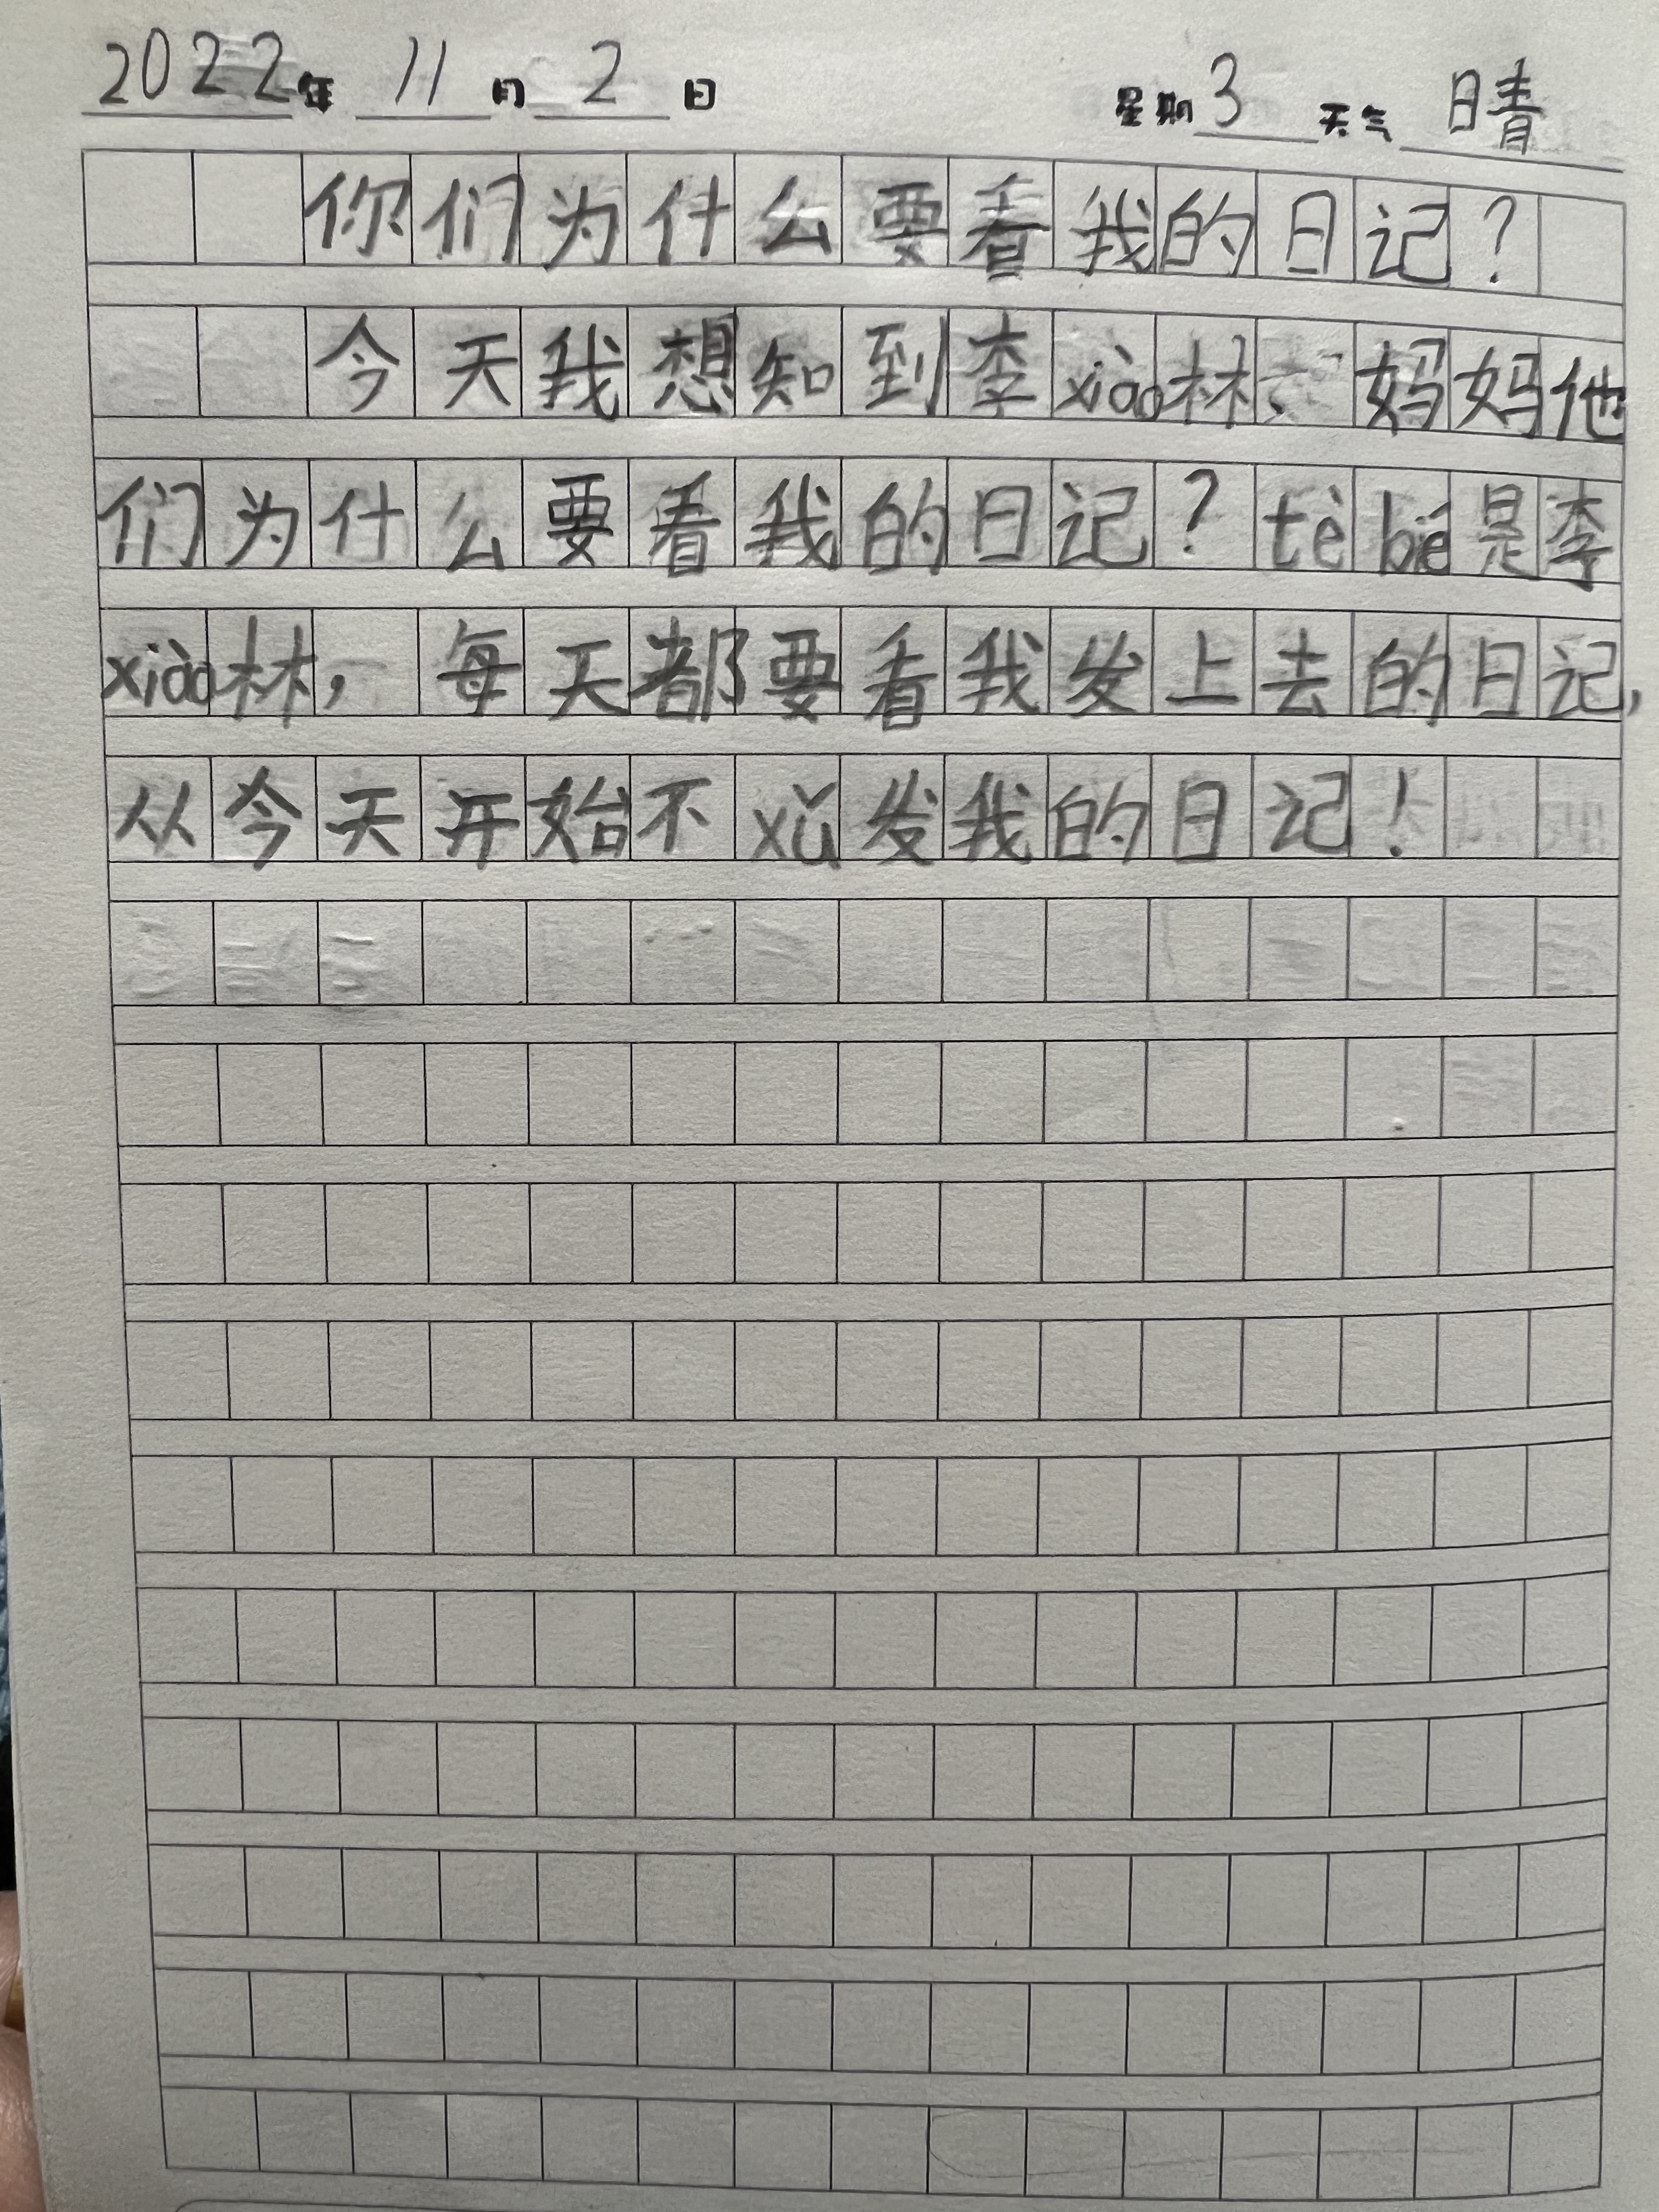 2022年 11 月 2 日 星期 3 天气 晴
你们为什么要看我的日记？
今天我想知到李xiào林、妈妈他
们为什么要看我的日记？tè bié是李
xiào林，每天都要看我发上去的日记，
从今天开始不xǔ发我的日记！